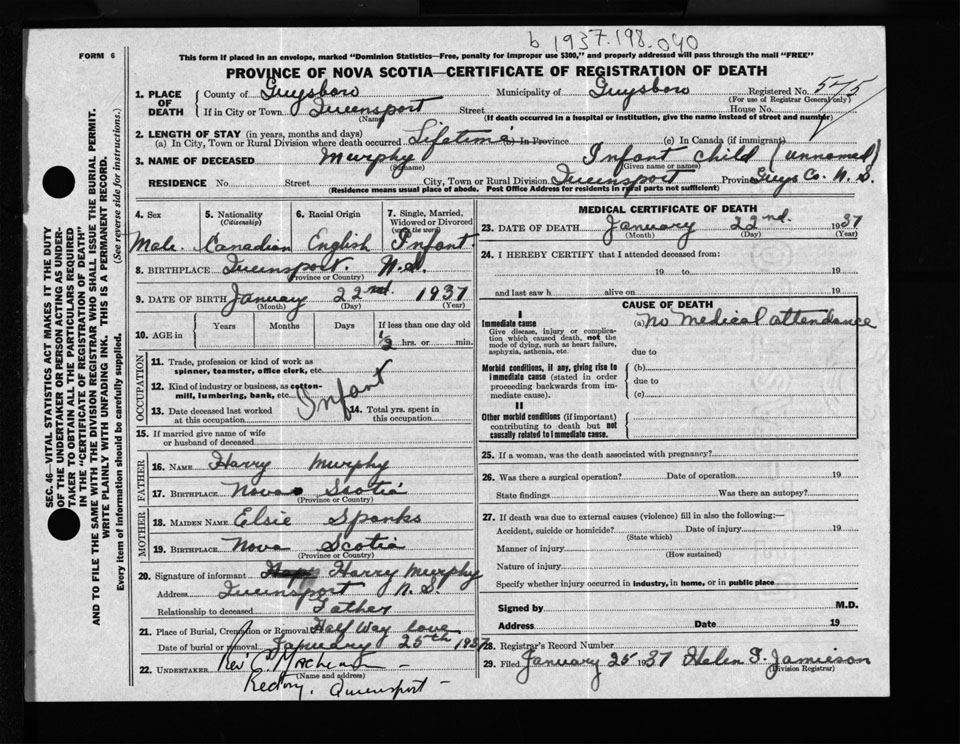 b 1937.198.040
FORM 6
This form if placed in an envelope, marked "Dominion Statistics—Free, penalty for improper use $300," and properly addressed will pass through the mail "FREE"
PROVINCE OF NOVA SCOTIA—CERTIFICATE OF REGISTRATION OF DEATH
1. PLACE OF DEATH
County of Guysboro Municipality of Guysboro Registered No. 575
(For use of Registrar General only)
If in City or Town Queensport Street House No.
(Name) (If death occurred in a hospital or institution, give the name instead of street and number)
2. LENGTH OF STAY (in years, months and days)
(a) In City, Town or Rural Division where death occurred Lifetime (b) In Province (c) In Canada (if immigrant)
3. NAME OF DECEASED Murphy Infant child (unnamed)
(Surname) (Given name or names)
RESIDENCE No. Street City, Town or Rural Division Queensport Province Guys Co. N.S.
(Residence means usual place of abode. Post Office Address for residents in rural parts not sufficient)
4. Sex 5. Nationality (Citizenship) 6. Racial Origin 7. Single, Married, Widowed or Divorced (write the word)
Male Canadian English Infant
8. BIRTHPLACE Queensport. N.S.
(Province or Country)
9. DATE OF BIRTH January 22nd. 1937
(Month) (Day) (Year)
10. AGE in Years Months Days If less than one day old
1/2 hrs. or min.
OCCUPATION
11. Trade, profession or kind of work as spinner, teamster, office clerk, etc.
12. Kind of industry or business, as cotton-mill, lumbering, bank, etc. Infant
13. Date deceased last worked at this occupation 14. Total yrs. spent in this occupation
15. If married give name of wife or husband of deceased
FATHER
16. NAME Harry Murphy
17. BIRTHPLACE Nova Scotia
(Province or Country)
MOTHER
18. MAIDEN NAME Elsie Spanks
19. BIRTHPLACE Nova Scotia
(Province or Country)
20. Signature of informant Harry Murphy
Address Queensport N.S.
Relationship to deceased Father
21. Place of Burial, Cremation or Removal Half Way Cove
Date of burial or removal January 25th 1937
22. UNDERTAKER Rev. C.
(Name and address)
Rectory, Queensport
MEDICAL CERTIFICATE OF DEATH
23. DATE OF DEATH January 22nd. 1937
(Month) (Day) (Year)
24. I HEREBY CERTIFY that I attended deceased from:
19 to 19
and last saw h alive on 19
CAUSE OF DEATH
I
Immediate cause (a) No Medical attendance
Give disease, injury or complication which caused death, not the mode of dying, such as heart failure, asphyxia, asthenia, etc.
due to
Morbid conditions, if any, giving rise to immediate cause (stated in order proceeding backwards from immediate cause).
(b)
due to
(c)
II
Other morbid conditions (if important) contributing to death but not causally related to immediate cause.
25. If a woman, was the death associated with pregnancy?
26. Was there a surgical operation? Date of operation 19
State findings Was there an autopsy?
27. If death was due to external causes (violence) fill in also the following:—
Accident, suicide or homicide? Date of injury 19
(State which)
Manner of injury
(How sustained)
Nature of injury
Specify whether injury occurred in industry, in home, or in public place
Signed by M.D.
Address Date 19
28. Registrar's Record Number
29. Filed January 25 1937 Helen T. Jamieson
(Division Registrar)
SEC. 46—VITAL STATISTICS ACT MAKES IT THE DUTY
OF THE UNDERTAKER OR PERSON ACTING AS UNDER-
TAKER TO OBTAIN ALL THE PARTICULARS REQUIRED
IN THE "CERTIFICATE OF REGISTRATION OF DEATH"
AND TO FILE THE SAME WITH THE DIVISION REGISTRAR WHO SHALL ISSUE THE BURIAL PERMIT.
WRITE PLAINLY WITH UNFADING INK. THIS IS A PERMANENT RECORD.
Every item of information should be carefully supplied. (See reverse side for instructions.)